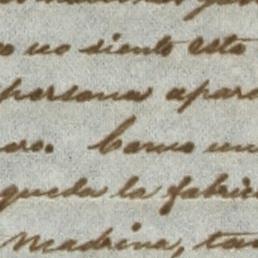 no siento esto
persona apare
Como un
queda la fabric
Madrina, ta